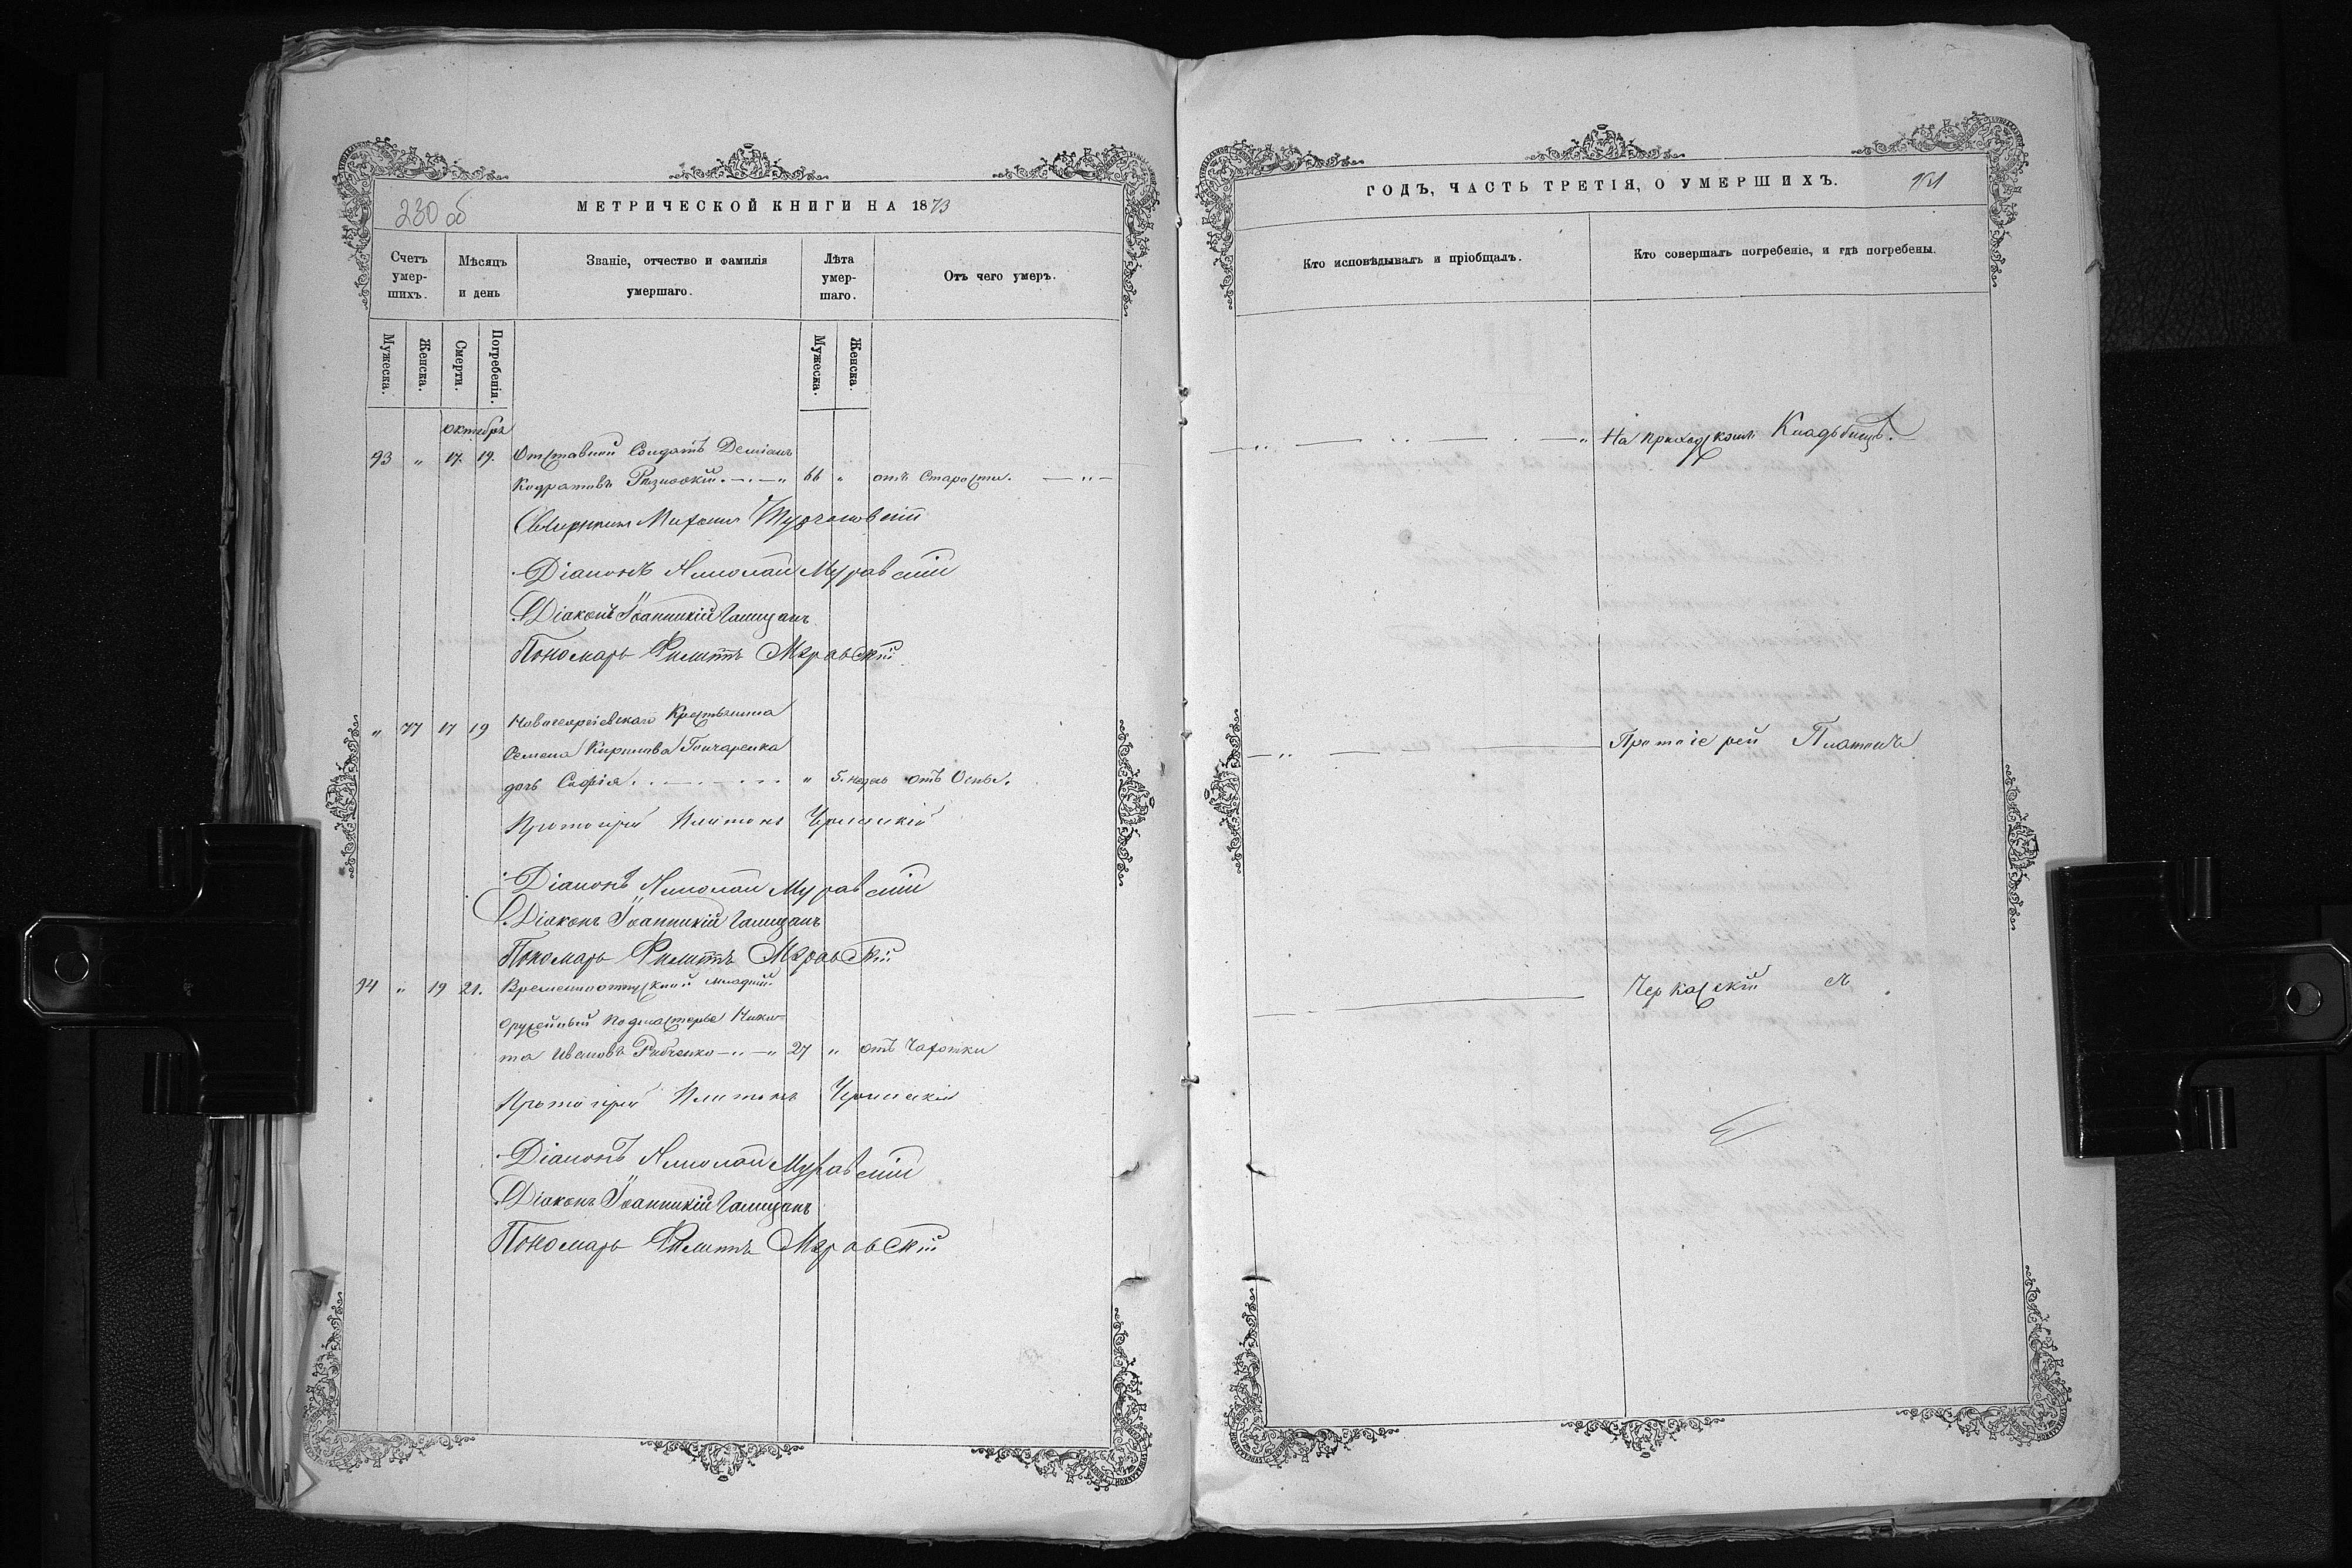 230 об
МЕТРИЧЕСКОЙ КНИГИ НА 1873
Счетъ умершихъ.
Мѣсяцъ и день
Званіе, отчество и фамилія умершаго.
Лѣта умершаго.
Отъ чего умеръ.
Мужеска.
Женска.
Смерти.
Погребенія.
Мужеска.
Женска.
октября
93 " 17. 19. Отставной Солдатъ Деміанъ
Кодратовъ 66 " отъ Старости.
Діаконъ Николай Муравскій
Діаконъ Іоанникій Галицанъ
Пономарь Филиппъ Муравскій
" 77 17 19 Крестьянина
Семена Кирилова Гончаренка
дочь Софія " 5. недель отъ Оспы.
Протоіерей Платонъ Черкаскій
Діаконъ Николай Муравскій
Діаконъ Іоанникій Галицанъ
Пономарь Филиппъ Муравскій
94 " 19 21. Временноотпускной младшій
оружейный подмастерье Ники-
та Ивановъ Рябченко 27 " отъ Чахотки
Протоіерей Платонъ Черкаскій
Діаконъ Николай Муравскій
Діаконъ Іоанникій Галицанъ
Пономарь Филиппъ Муравскій
ГОДЪ, ЧАСТЬ ТРЕТІЯ, О УМЕРШИХЪ.
Кто исповѣдывалъ и пріобщалъ.
Кто совершалъ погребеніе, и гдѣ погребены.
На приходскомъ Кладбищѣ.
Протоіерей Платонъ
Черкаскій